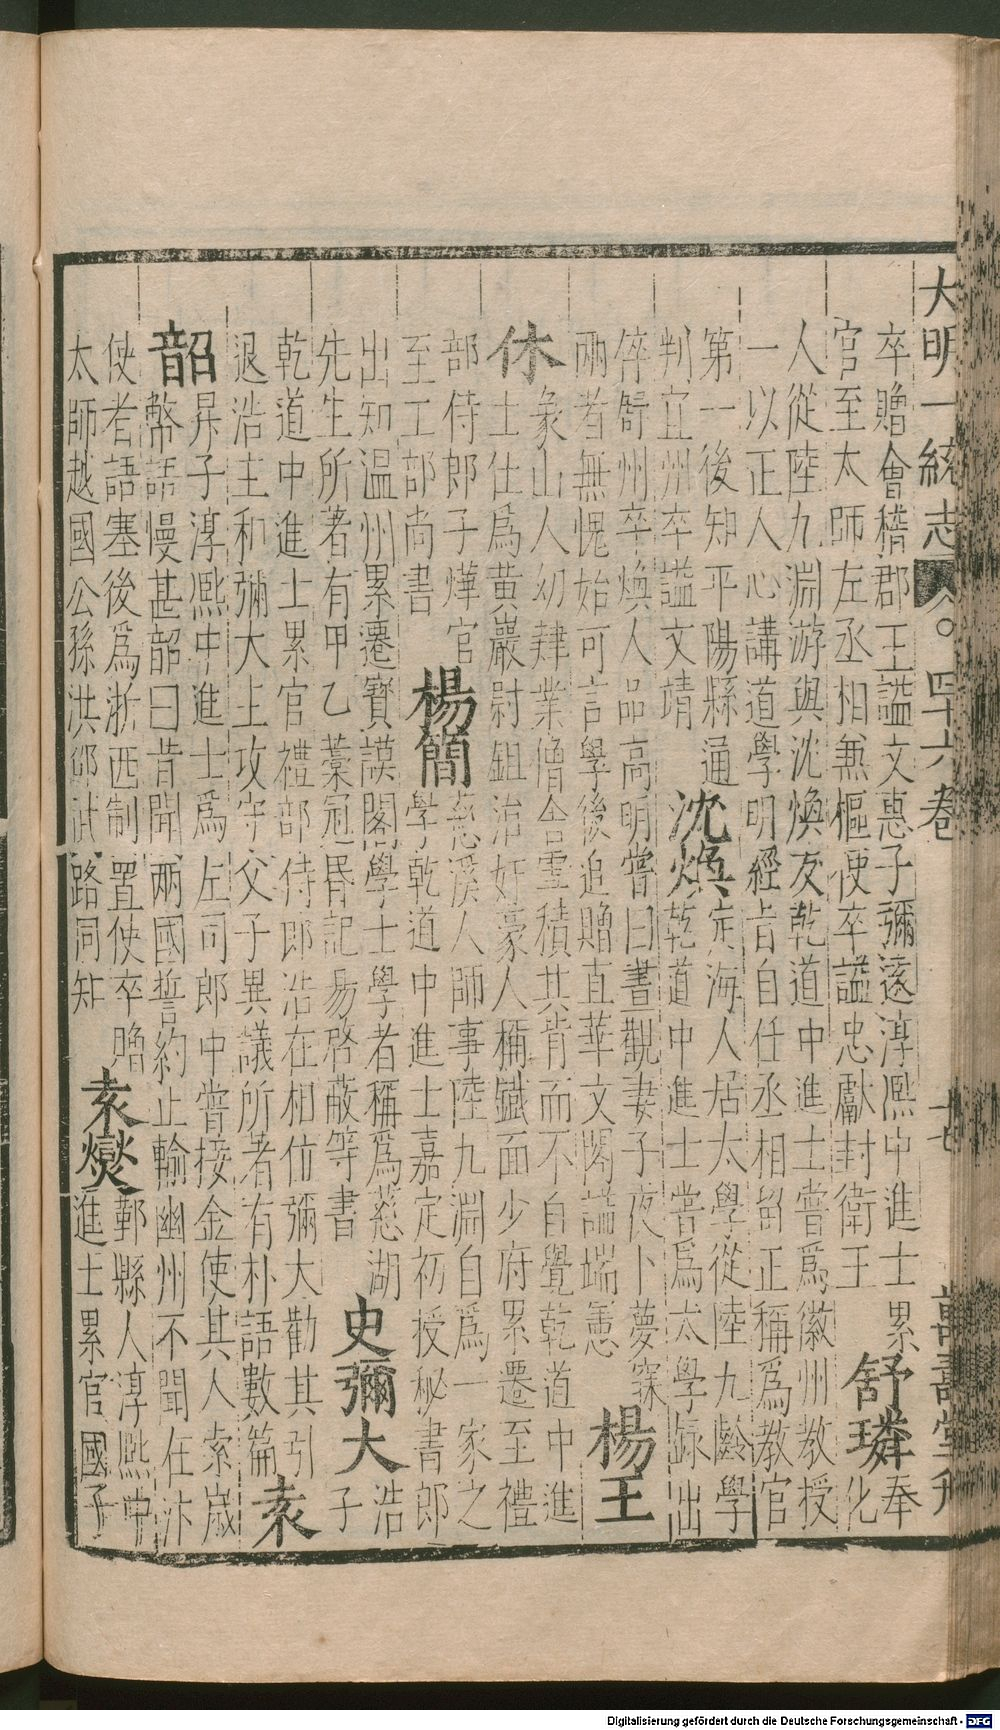 大明一統志 人。四十六卷 十七 萬壽堂刊
卒贈會稽郡王謚文惠子彌逺淳熈中進士累
官至太師左丞相兼樞使卒謚忠獻封衛王
舒璘
奉化
人從陸九淵游與沈煥友乾道中進士嘗爲徽州教授
一以正人心講道學明經旨自任丞相留正稱爲教官
第一後知平陽縣通
判宜州卒謚文靖
沈煥
定海人居太學從陸九齡學
乾道中進士嘗爲太學錄出
倅舒州卒煥人品高明嘗曰晝觀妻子夜卜夢寐
兩者無愧始可言學後追贈直華文閣謚端憲
楊王
休
象山人幼肄業僧舎雪積其背而不自覺乾道中進
士仕爲黃巖尉鉏治奸豪人稱鐵面少府累遷至禮
部侍郎子燁官
至工部尚書
楊簡
慈溪人師事陸九淵自爲一家之
學乾道中進士嘉定初授秘書郎
出知温州累遷寳謨閣學士學者稱爲慈湖
先生所著有甲乙藁冠昏記易啓蔽等書
史彌大
浩
子
乾道中進士累官禮部侍郎浩在相位彌大勸其引
退浩主和彌大上攻守父子異議所著有朴語數篇
袁
韶
昇子淳熈中進士爲左司郎中嘗接金使其人索歲
幣語慢甚韶曰昔聞兩國誓約止輸幽州不聞在汴
使者語塞後爲浙西制置使卒贈
太師越國公孫洪郊試路同知
袁燮
鄞縣人淳熈中
進士累官國子
Digitalisierung gefördert durch die Deutsche Forschungsgemeinschaft - DFG